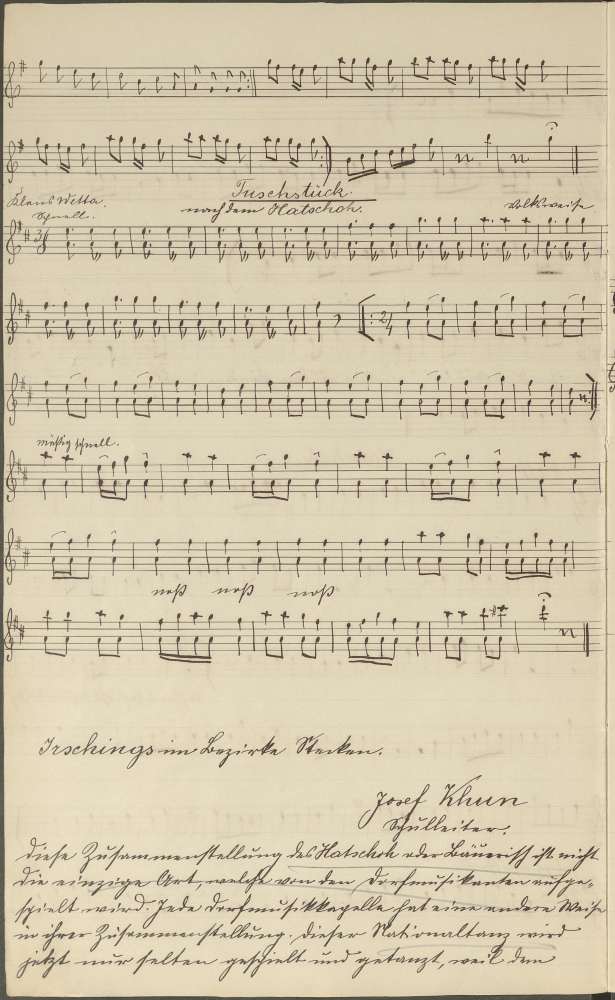 Tuschstück.
Klaus Witta. nach dem Hatschoh. Volksweise
Schnell.
3/8
2/4
mäßig schnell.
naß naß naß
Irschings im Bezirke Stecken.
Josef Khun
Schulleiter.
Diese Zusammenstellung des Hatschoh oder Bäuerisch ist nicht
die einzige Art, welche von den Dorfmusikanten aufge-
spielt wird. Jede Dorfmusikkapelle hat eine andere Weise
in ihrer Zusammenstellung. Dieser Nationaltanz wird
jetzt nur selten gespielt und getanzt, weil dem